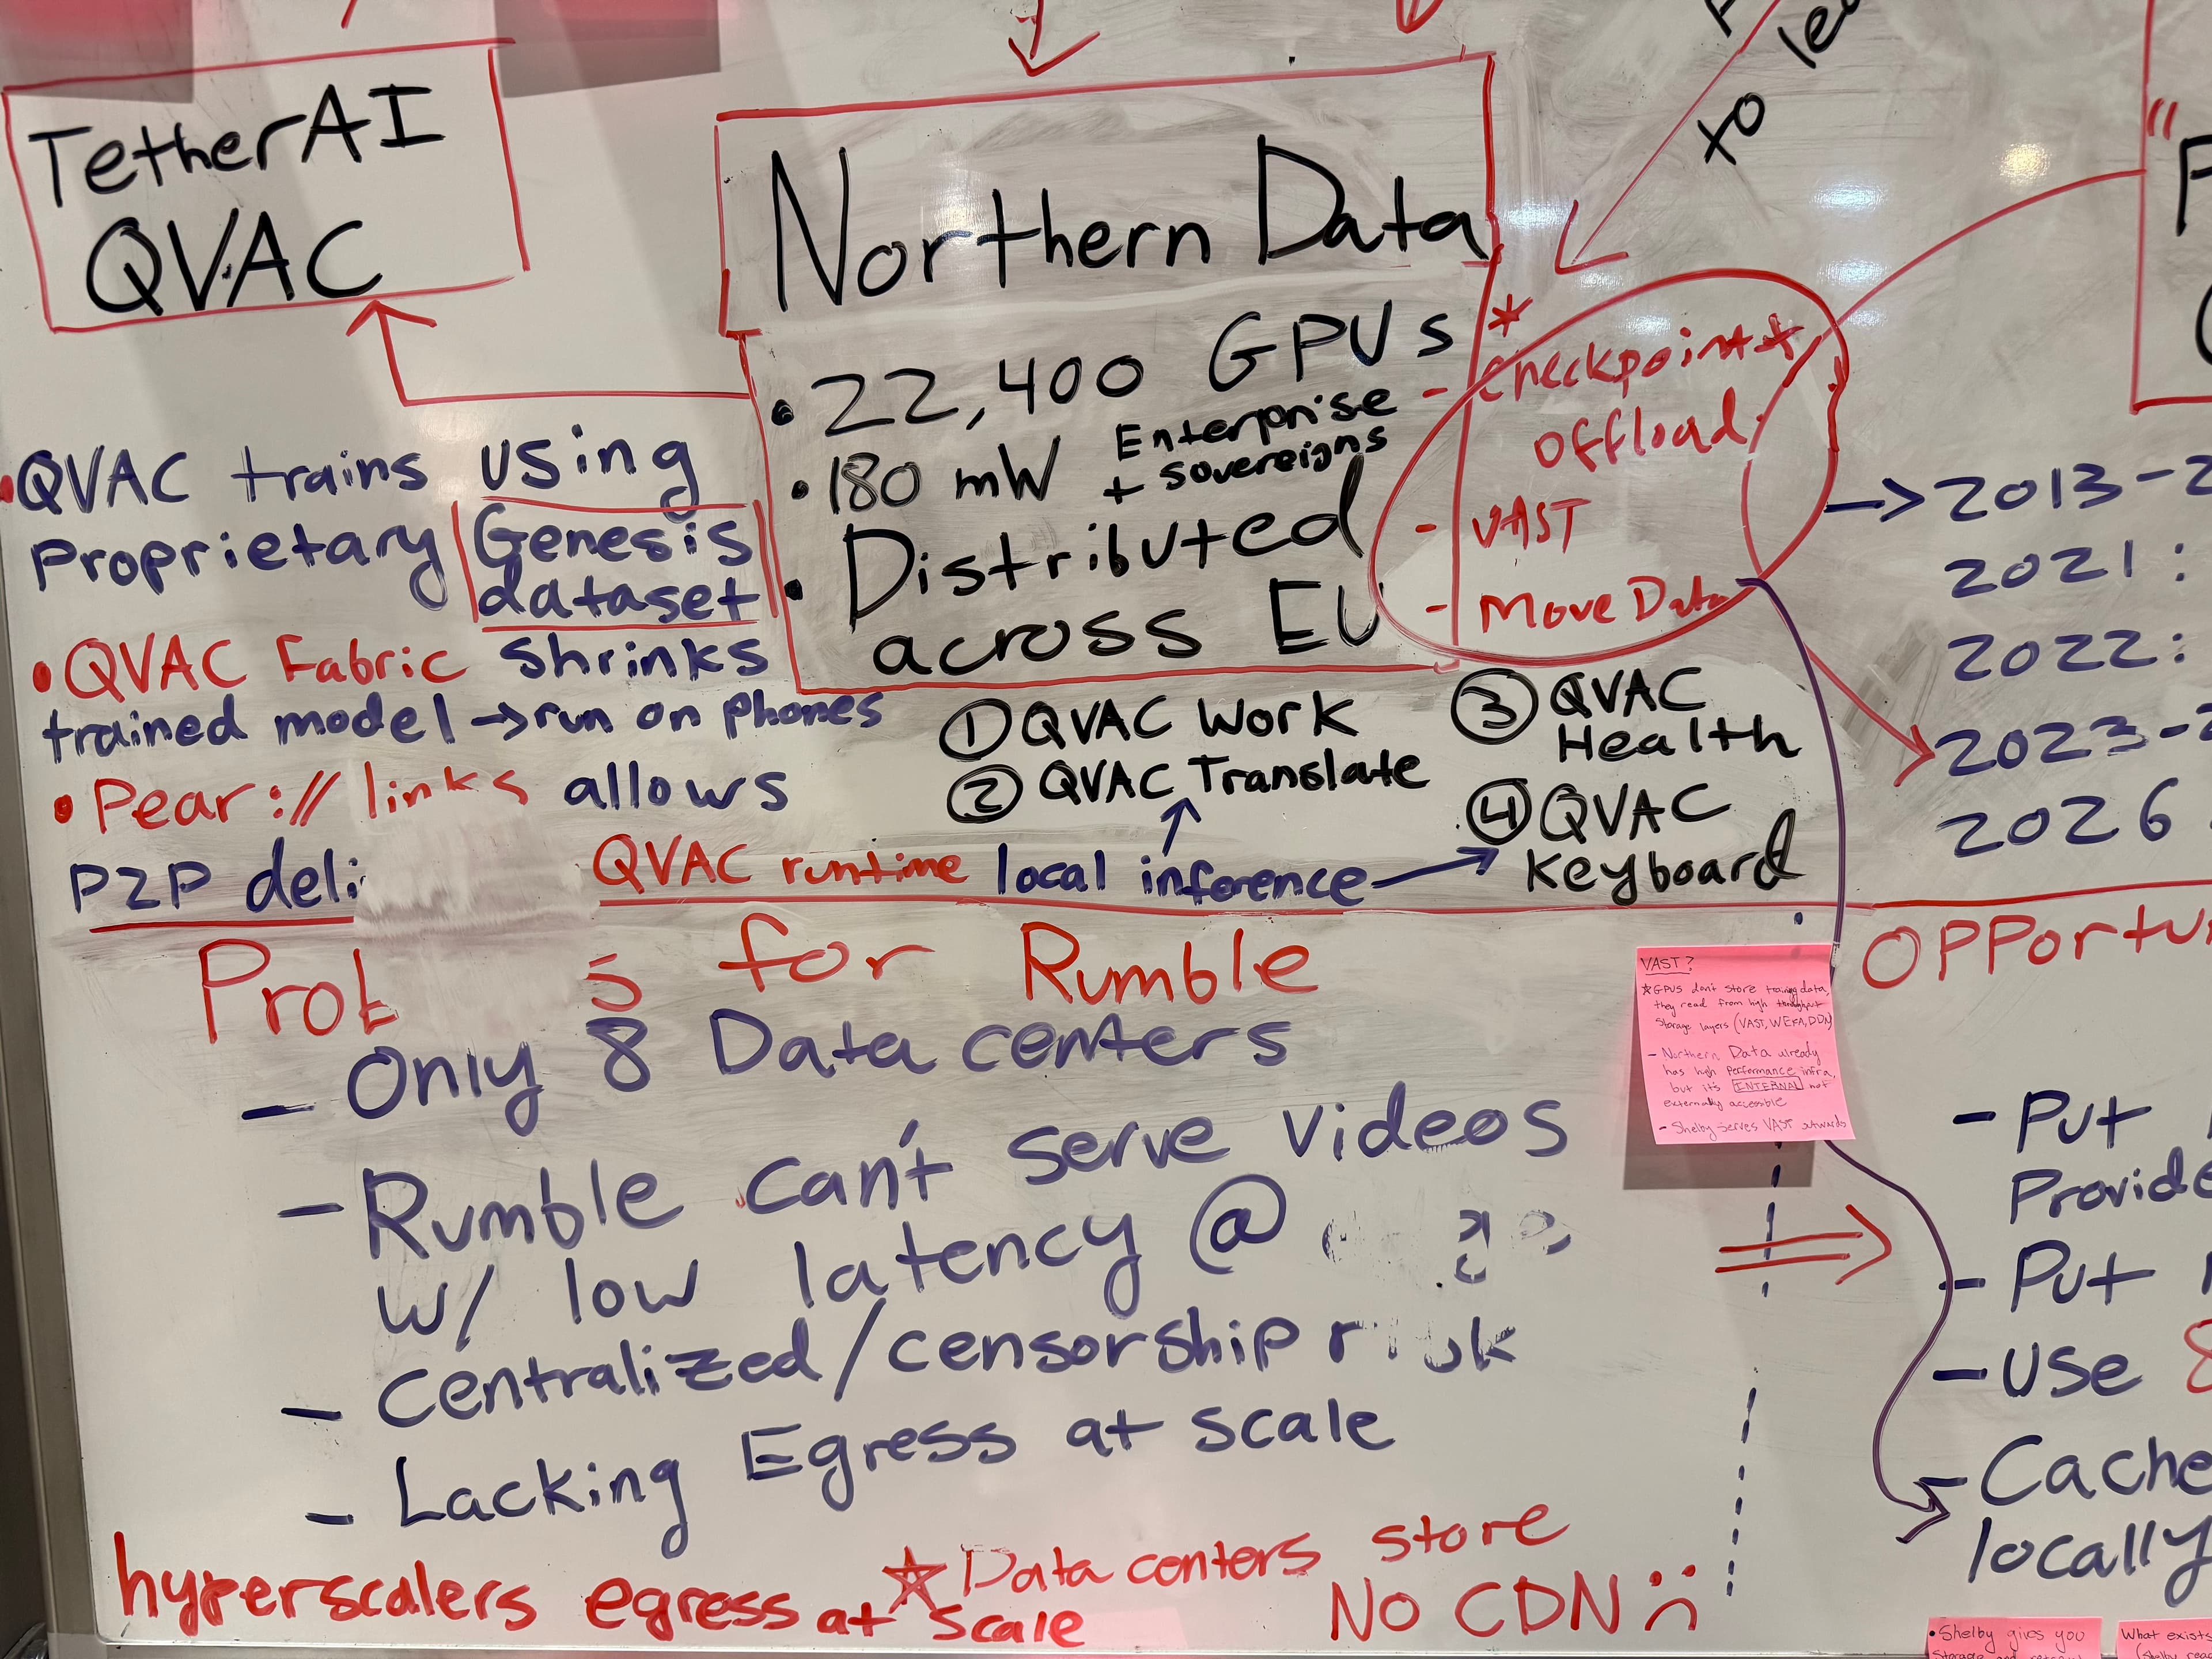 TetherAI
QVAC
Northern Data
• 22,400 GPUs *
• 180 mW Enterprise + sovereigns
• Distributed
across EU
- Checkpoint *
offload
- VAST
- Move Data
to
• QVAC trains using
Proprietary Genesis
dataset
• QVAC Fabric shrinks
trained model → run on phones
• Pear:// links allows
P2P deli
① QVAC Work
② QVAC Translate
③ QVAC
Health
④ QVAC
Keyboard
QVAC runtime local inference
→ 2013-2
2021:
2022:
2023-2
2026
Prob s for Rumble
- Only 8 Data centers
- Rumble can't serve videos
w/ low latency @
- Centralized/censorship
- Lacking Egress at scale
hyperscalers egress at scale
☆ Data centers store
NO CDN :(
VAST?
☆ GPUs don't store training data,
they read from high throughput
storage layers (VAST, WEKA, DDN)
- Northern Data already
has high performance infra,
but it's INTERNAL not
externally accessible
- Shelby serves VAST outwards
Opportu
- Put
Provide
- Put
- Use 8
- Cache
locally
• Shelby gives you
What exists